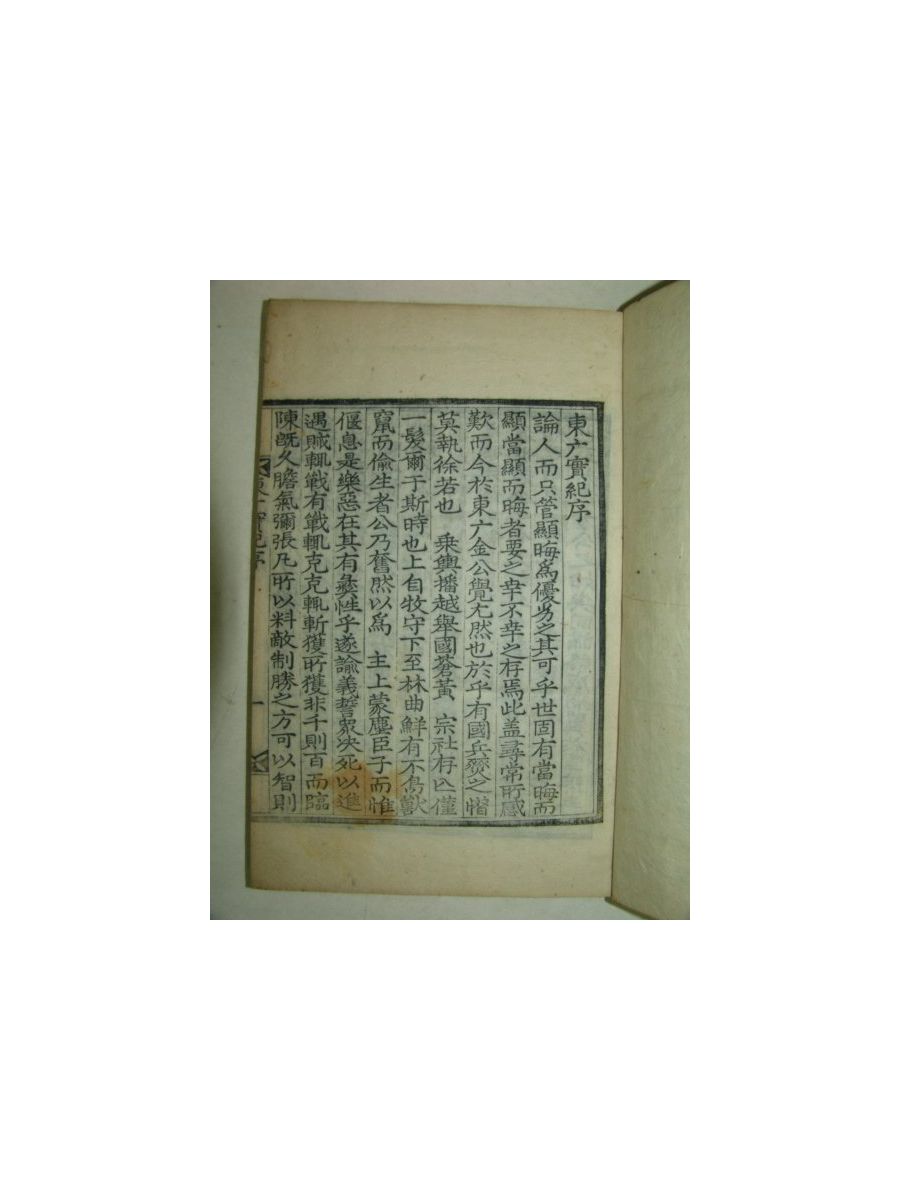 東广實紀序
論人而只管顯晦爲優劣之其可乎世固有當晦而
顯當顯而晦者要之幸不幸之存焉此盖尋常所感
歎而今於東广金公覺尤然也於乎有國兵燹之憯
莫執徐若也 乘輿播越擧國蒼黃 宗社存亾僅
一髮爾于斯時也上自牧守下至林曲鮮有不鳥獸
竄而偷生者公乃奮然以爲 主上蒙塵臣子而惟
偃息是樂惡在其有彜性乎遂諭義誓衆决死以進
遇賊輒戰有戰輒克克輒斬獲所獲非千則百而臨
陳旣久膽氣彌張凡所以料敵制勝之方可以智則
東广實紀序
一